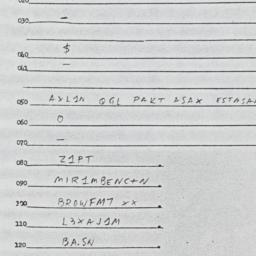 030. –
060. $
061. –
050. AXL1N QGL PAKT ASAX
060. O
070. –
080. Z1PT
090. MIR1MBENC+N
BROWFMT xx
110. L3XAJ1M
120. BA.SN